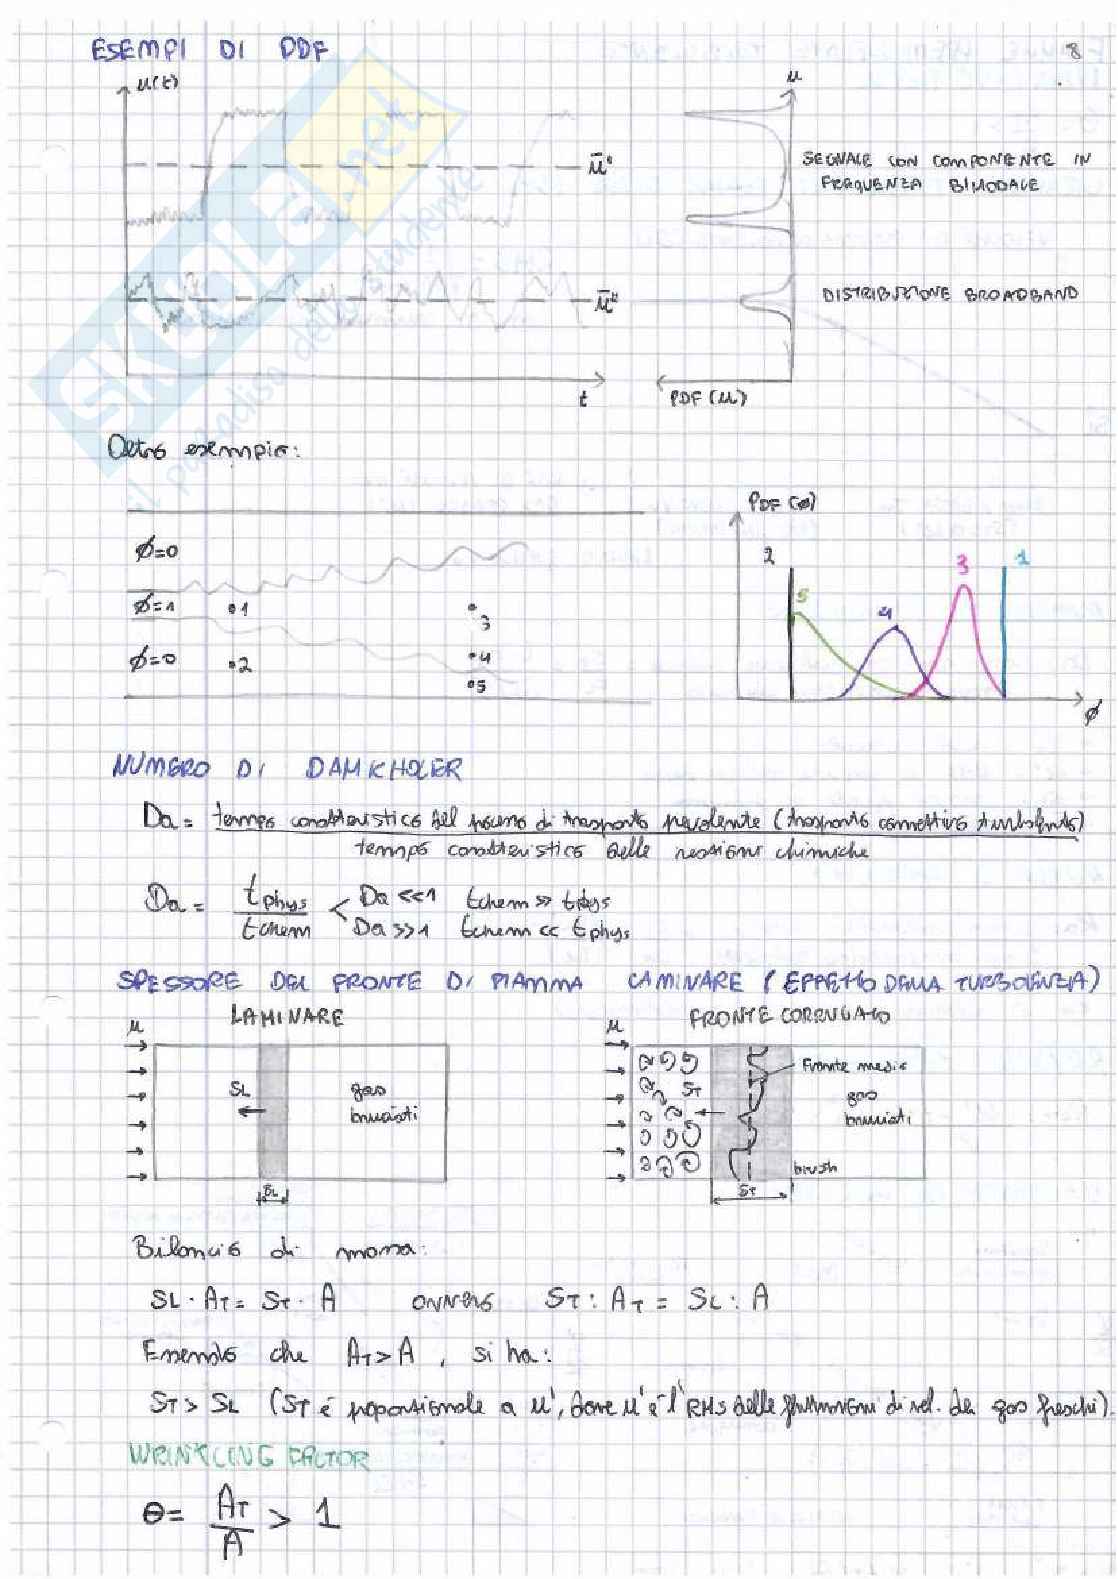 ESEMPI DI PDF
8
u(t)
ū'
ū"
t
u
PDF (u)
SEGNALE CON COMPONENTE IN
FREQUENZA BIMODALE
DISTRIBUZIONE BROADBAND
SKUOLA.net
il paradiso dello studente
Altro esempio:
ϕ=0
ϕ=1
ϕ=0
1
2
3
4
5
PDF (ϕ)
2
5
4
3
1
ϕ
NUMERO DI DAMKHOLER
Da = tempo caratteristico del processo di trasporto prevalente (trasporto convettivo turbolento)
tempo caratteristico delle reazioni chimiche
Da = tphys / tchem < Da <<1 tchem >> tphys
Da >>1 tchem << tphys
SPESSORE DEL FRONTE DI FIAMMA LAMINARE (EFFETTO DELLA TURBOLENZA)
LAMINARE
u
SL
gas
bruciati
δL
FRONTE CORRUGATO
u
ST
Fronte medio
gas
bruciati
brush
δT
Bilancio di massa:
SL · AT = ST · A ovvero ST : AT = SL : A
Essendo che AT > A , si ha:
ST > SL (ST è proporzionale a u', dove u' è l'RMS delle fluttuazioni di vel. dei gas freschi).
WRINKLING FACTOR
Θ = AT / A > 1